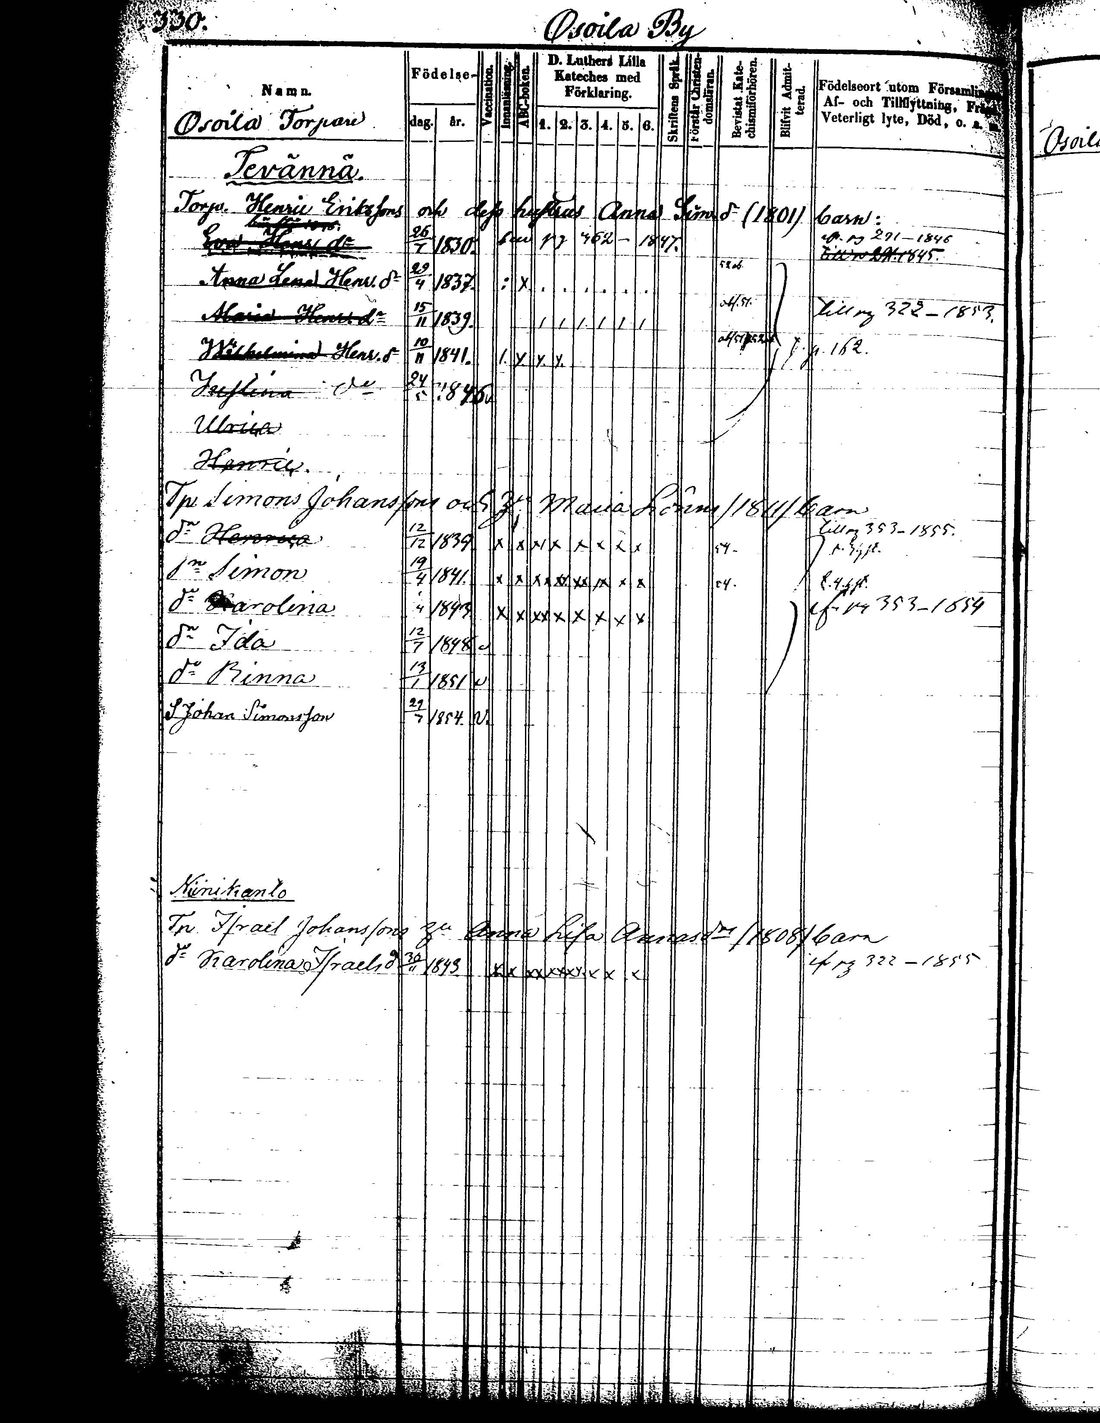 330.
Osoila By
Namn.
Födelse-
dag.
år.
Vaccination.
Innanläsning.
ABC-boken.
D. Luthers Lilla
Kateches med
Förklaring.
1. 2. 3. 4. 5. 6.
Skriftens Språk.
Förstår Christen-
domsläran.
Bevistat Kate-
chismiförhören.
Blifvit Admit-
terad.
Födelseort utom Församlin
Af- och Tillflyttning,
Veterligt lyte, Död, o. a.
Osoila Torpare
Tevännä.
Torp. Henric Erikssons och dess hustrus Anna Sim.d (1801) barn:
Eva Henr. dr 26/7 1830. pg 462 - 1847. pg 291-1846
1845.
Anna Lena Henr. d. 29/4 1837.
Maria Henr. dr 15/11 1839. till pg 322-1853.
Wilhelmina Henr. d 10/11 1841. p. 162.
Justina de 24/5 1846
Ulrica
Henric.
Tp Simons Johanssons och Maria Lönns /1811/ barn
dr Henrica 12/12 1839 54. till pg 353-1855.
sn Simon 19/4 1841. 54.
dr Karolina 4 1843 pg 353-1854
dr Ida 12/7 1848
dr Rinna 13/1 1851
S Johan Simonsson 29/7 1854.
Niinikanto
Tp. Israel Johanssons Anna Lisa Annasdr /1808/ barn
dr Karolina Israels d 30/11 1843 pg 322-1855